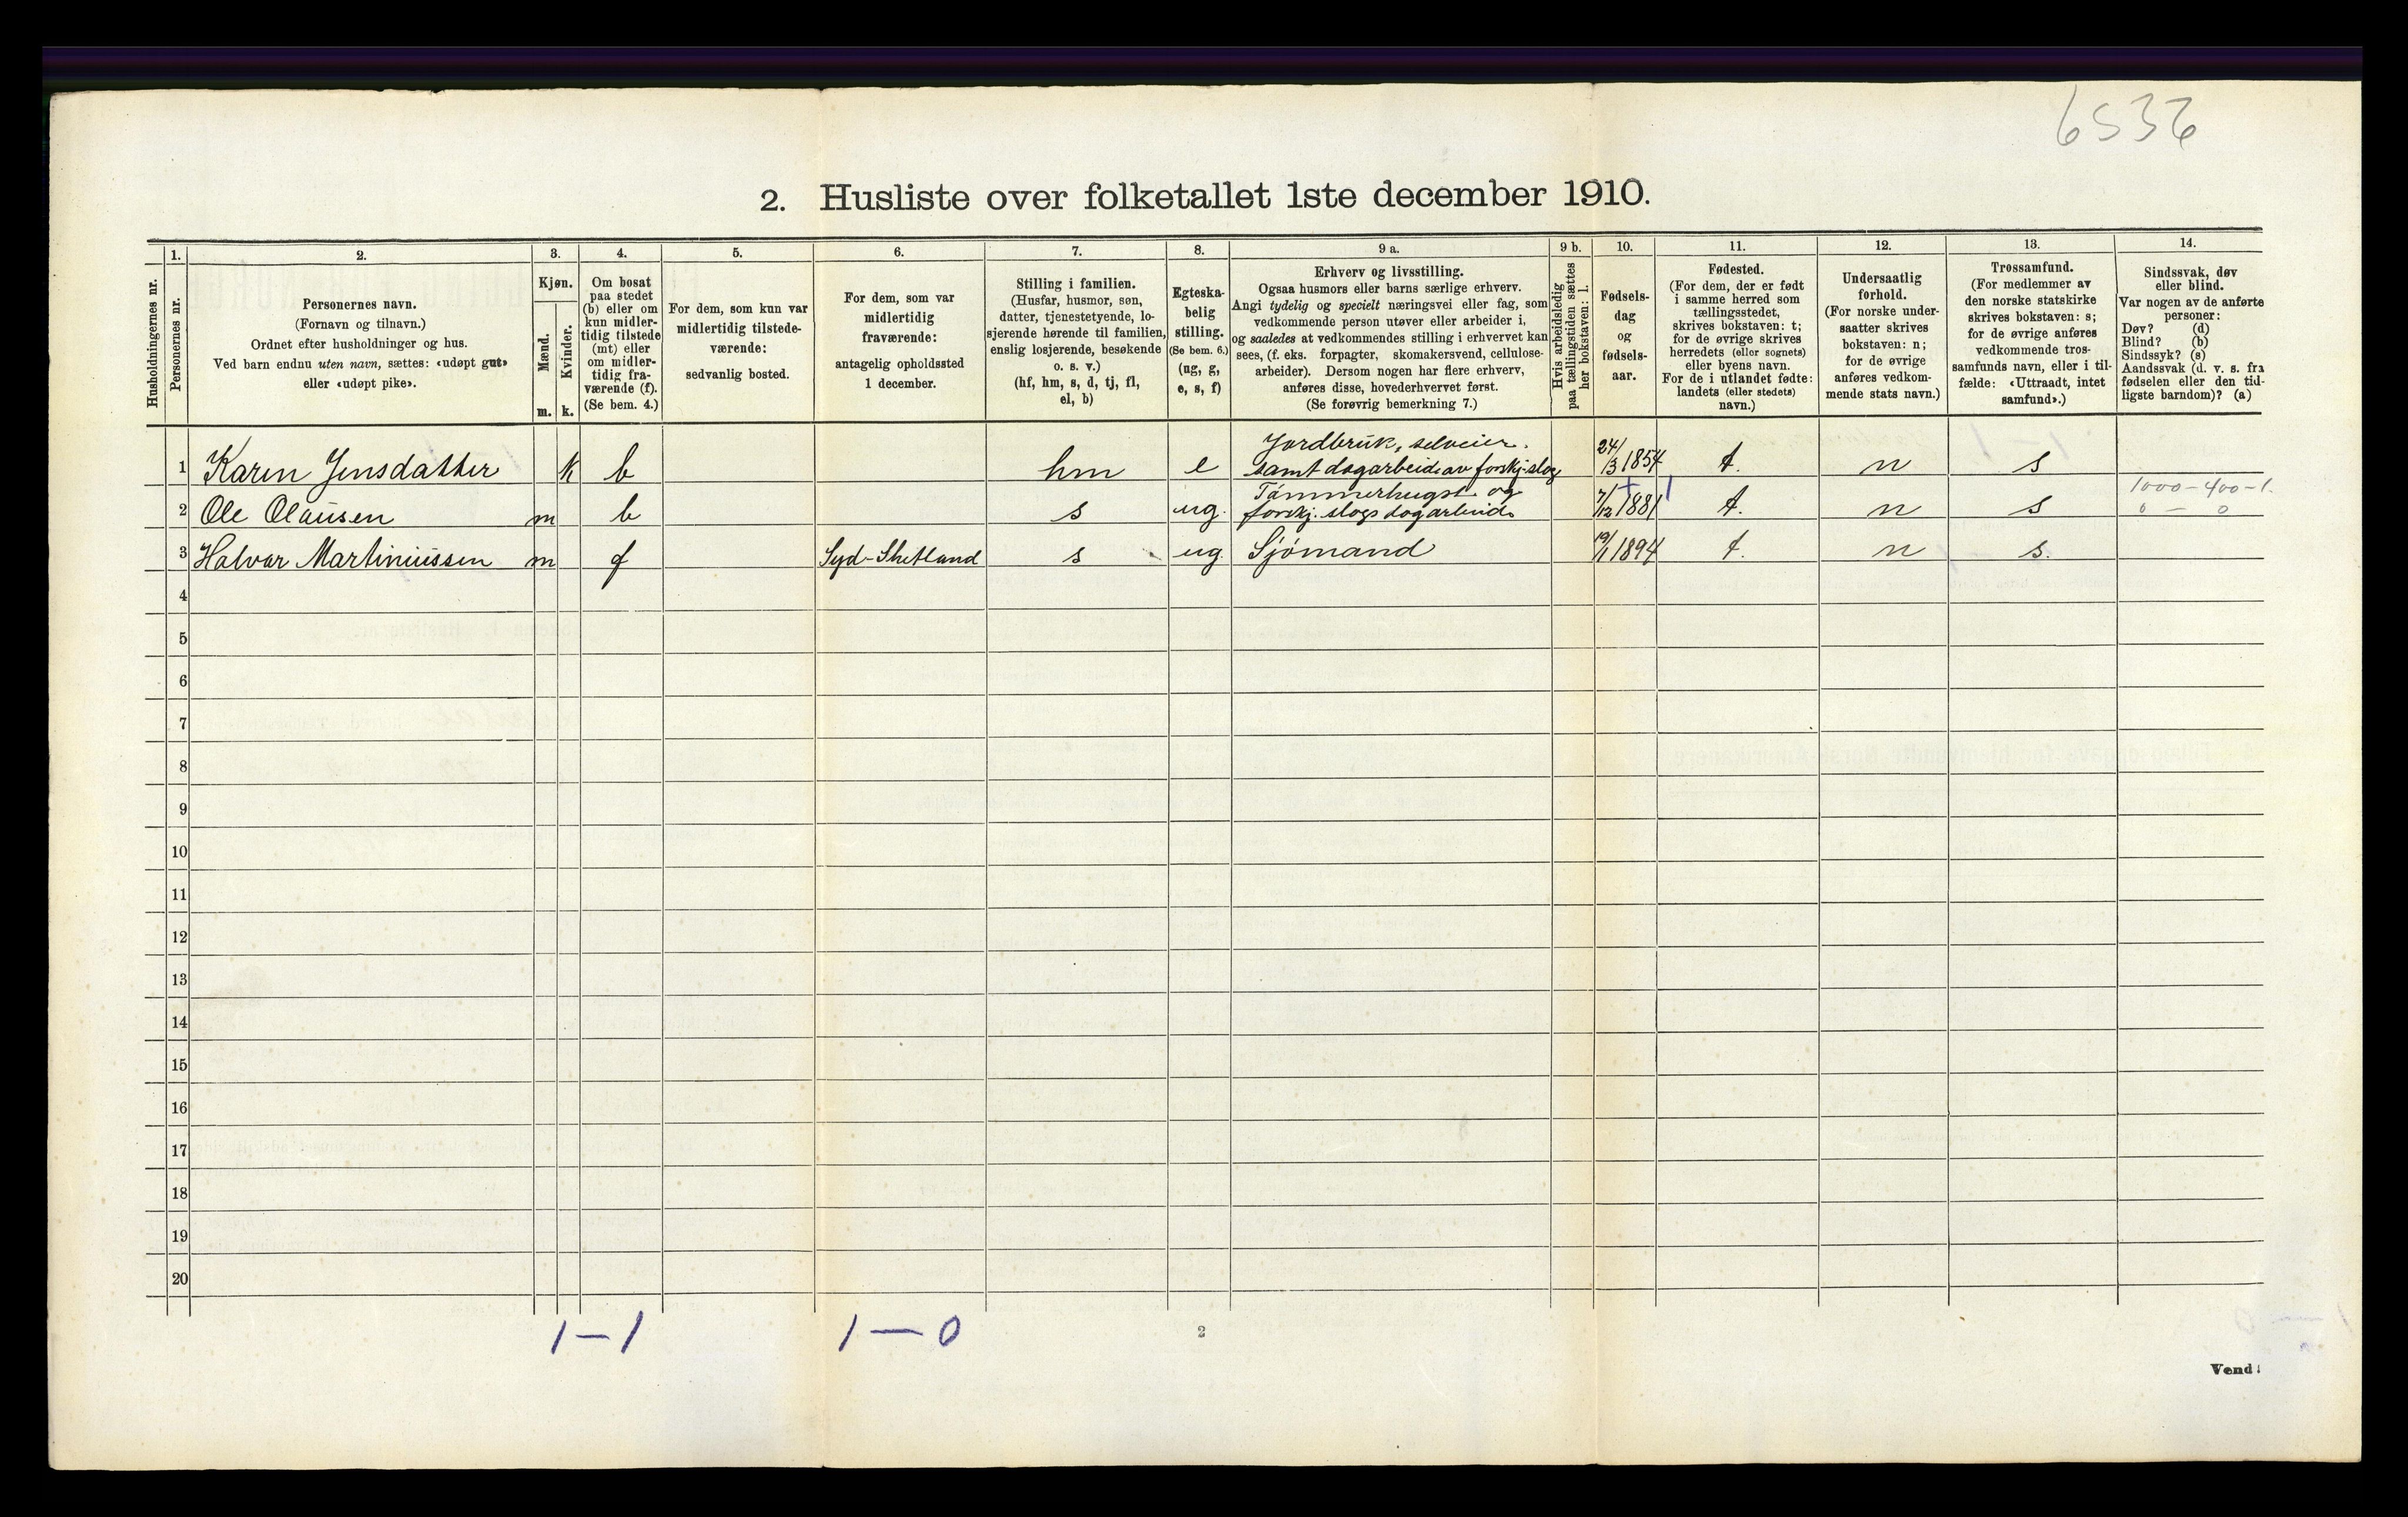 6536
2. Husliste over folketallet 1ste december 1910.
Husholdningernes nr.
1.
Personernes nr.
2.
Personernes navn.
(Fornavn og tilnavn.)
Ordnet efter husholdninger og hus.
Ved barn endnu uten navn, sættes: «udøpt gut»
eller «udøpt pike».
3.
Kjøn.
Mænd.
Kvinder.
m. k.
4.
Om bosat
paa stedet
(b) eller om
kun midler-
tidig tilstede
(mt) eller
om midler-
tidig fra-
værende (f).
(Se bem. 4.)
5.
For dem, som kun var
midlertidig tilstede-
værende:
sedvanlig bosted.
6.
For dem, som var
midlertidig
fraværende:
antagelig opholdssted
1 december.
7.
Stilling i familien.
(Husfar, husmor, søn,
datter, tjenestetyende, lo-
sjerende hørende til familien,
enslig losjerende, besøkende
o. s. v.)
(hf, hm, s, d, tj, fl,
el, b)
8.
Egteska-
belig
stilling.
(Se bem. 6.)
(ug, g,
e, s, f)
9 a.
Erhverv og livsstilling.
Ogsaa husmors eller barns særlige erhverv.
Angi tydelig og specielt næringsvei eller fag, som
vedkommende person utøver eller arbeider i,
og saaledes at vedkommendes stilling i erhvervet kan
sees, (f. eks. forpagter, skomakersvend, cellulose-
arbeider). Dersom nogen har flere erhverv,
anføres disse, hovederhvervet først.
(Se forøvrig bemerkning 7.)
9 b.
Hvis arbeidsledig
paa tællingstiden sættes
her bokstaven: l.
10.
Fødsels-
dag
og
fødsels-
aar.
11.
Fødested.
(For dem, der er født
i samme herred som
tællingsstedet,
skrives bokstaven: t;
for de øvrige skrives
herredets (eller sognets)
eller byens navn.
For de i utlandet fødte:
landets (eller stedets)
navn.)
12.
Undersaatlig
forhold.
(For norske under-
saatter skrives
bokstaven: n;
for de øvrige
anføres vedkom-
mende stats navn.)
13.
Trossamfund.
(For medlemmer av
den norske statskirke
skrives bokstaven: s;
for de øvrige anføres
vedkommende tros-
samfunds navn, eller i til-
fælde: «Uttraadt, intet
samfund».)
14.
Sindssvak, døv
eller blind.
Var nogen av de anførte
personer:
Døv? (d)
Blind? (b)
Sindssyk? (s)
Aandssvak (d. v. s. fra
fødselen eller den tid-
ligste barndom)? (a)
1 Karen Jensdatter k b hm e Jordbruk, selveier.
samt dagarbeide av forskj. slag 24/3 1854 t. n s
2 Ole Olausen m b s ug. Tømmerhugst og
forskj. slags dagarbeide 7/12 1881 t. n s 1000-400-1.
0 - 0
3 Halvar Martiniussen m f Syd-Shetland s ug. Sjømand 19/1 1894 t. n s.
4
5
6
7
8
9
10
11
12
13
14
15
16
17
18
19
20
1-1 1-0
2
Vend!